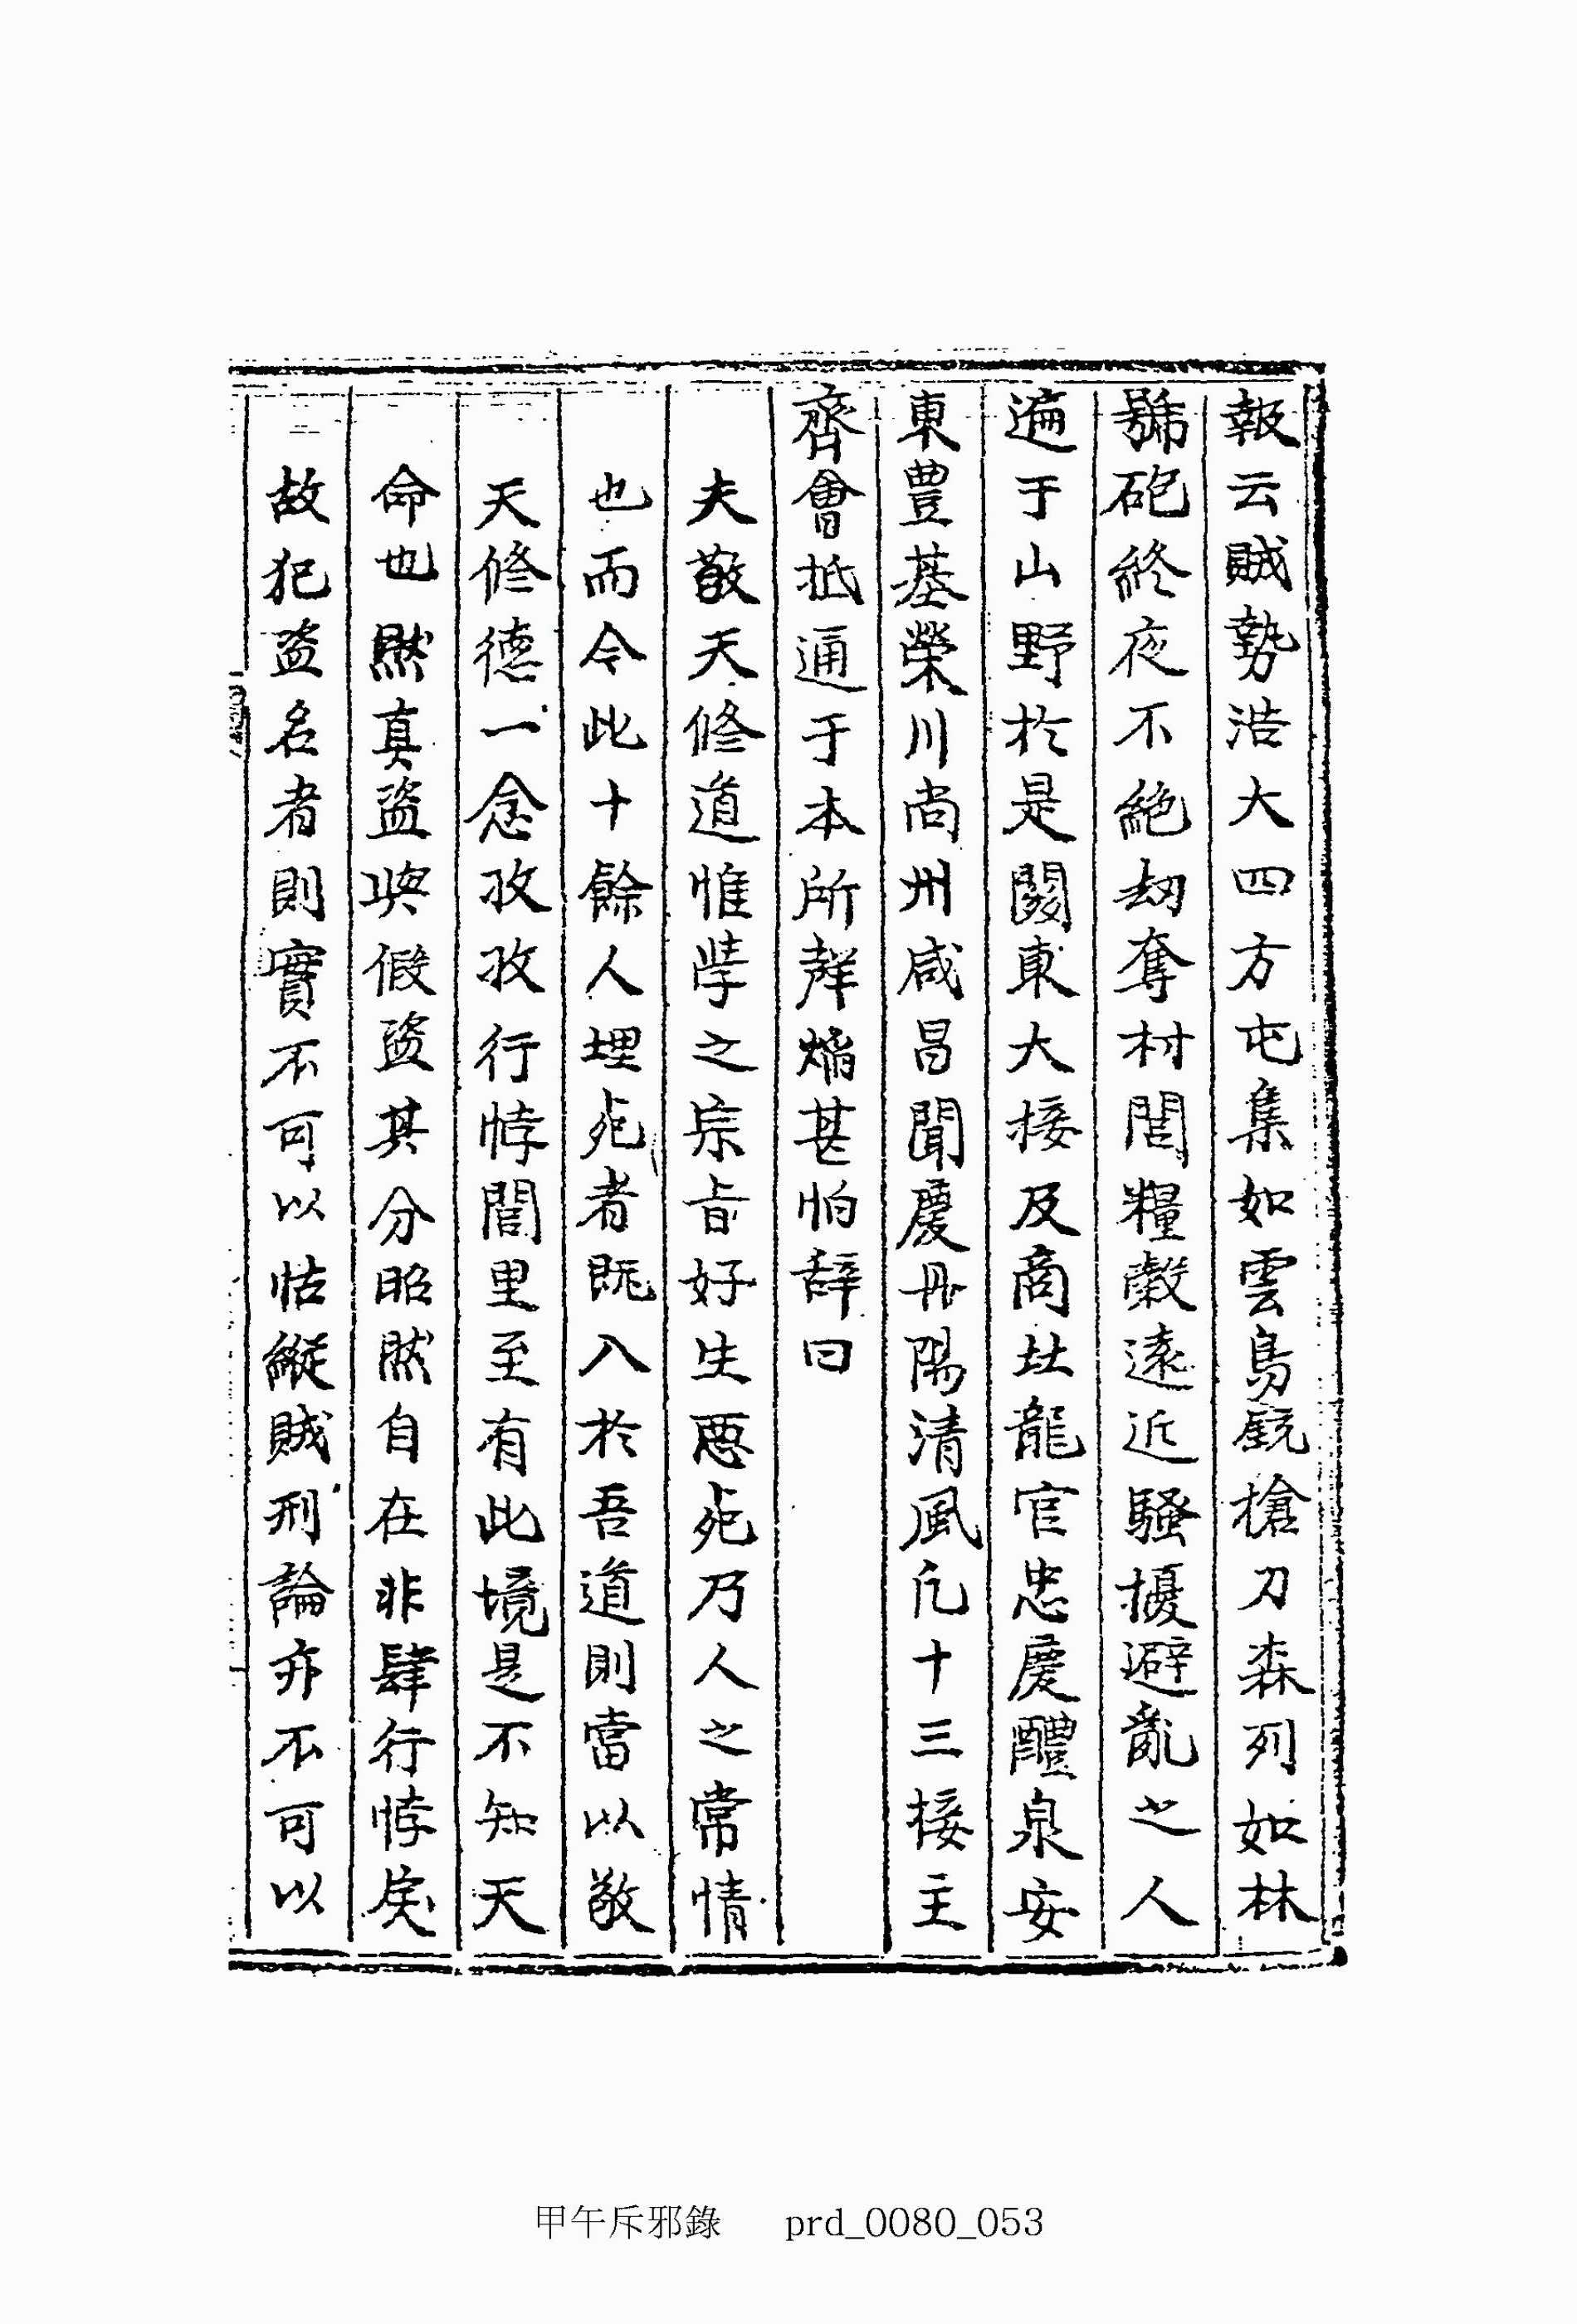 報云賊勢浩大四方屯集如雲鳥銃槍刀森列如林
號砲終夜不絶刼奪村閭糧穀遠近騷擾避亂之人
遍于山野於是關東大接及商北龍宮忠慶醴泉安
東豊基榮川尙州咸昌聞慶丹陽淸風凡十三接主
齊會抵通于本所聲焰甚怕辭曰
夫敬天修道惟學之宗旨好生悪死乃人之常情
也而今此十餘人埋死者旣入於吾道則當以敬
天修德一念孜孜行悖閭里至有此境是不知天
命也然眞盜與假盜其分昭然自在非肆行悖戾
故犯盜名者則實不可以怙縱賊刑論亦不可以
甲午斥邪錄 prd_0080_053